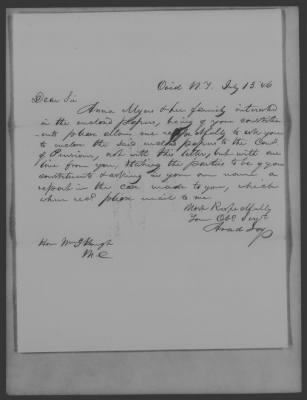 Ovid N.Y. July 13 '46
Dear Sir
Anna Myers & her family interested
in the enclosed papers, being of your constitu-
ents please allow me respectfully to ask you
to enclose the said enclosed papers to the Com'r
of Pensions, not with this letter, but with one
line from you, stating the parties to be of your
constituents & asking in your own name, a
report in the case made to you, which
when rec'd please mail to me
Most Respectfully
Your Ob't Serv't
Arad Joy
Hon Wm
M.C.